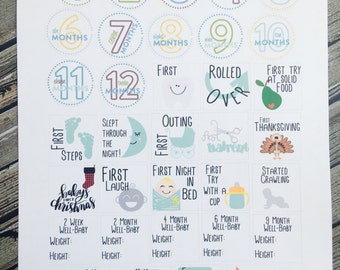 6 MONTHS
7 MONTHS
8 MONTHS
9 MONTHS
10 MONTHS
11 MONTHS
12 MONTHS
First
Rolled
Over
First try
at solid
food
First
Steps
Slept
through
the
night!
First
Outing
First
Thanksgiving
baby's
first
Christmas
First
Laugh
First Night in
Bed
First
Try
with a
cup
Started
Crawling
2 Week
Well-Baby
Weight:
Height:
2 Month
Well-Baby
Weight:
Height:
4 Month
Well-Baby
Weight:
Height:
6 Month
Well-Baby
Weight:
Height:
9 Month
Well-Baby
Weight:
Height: